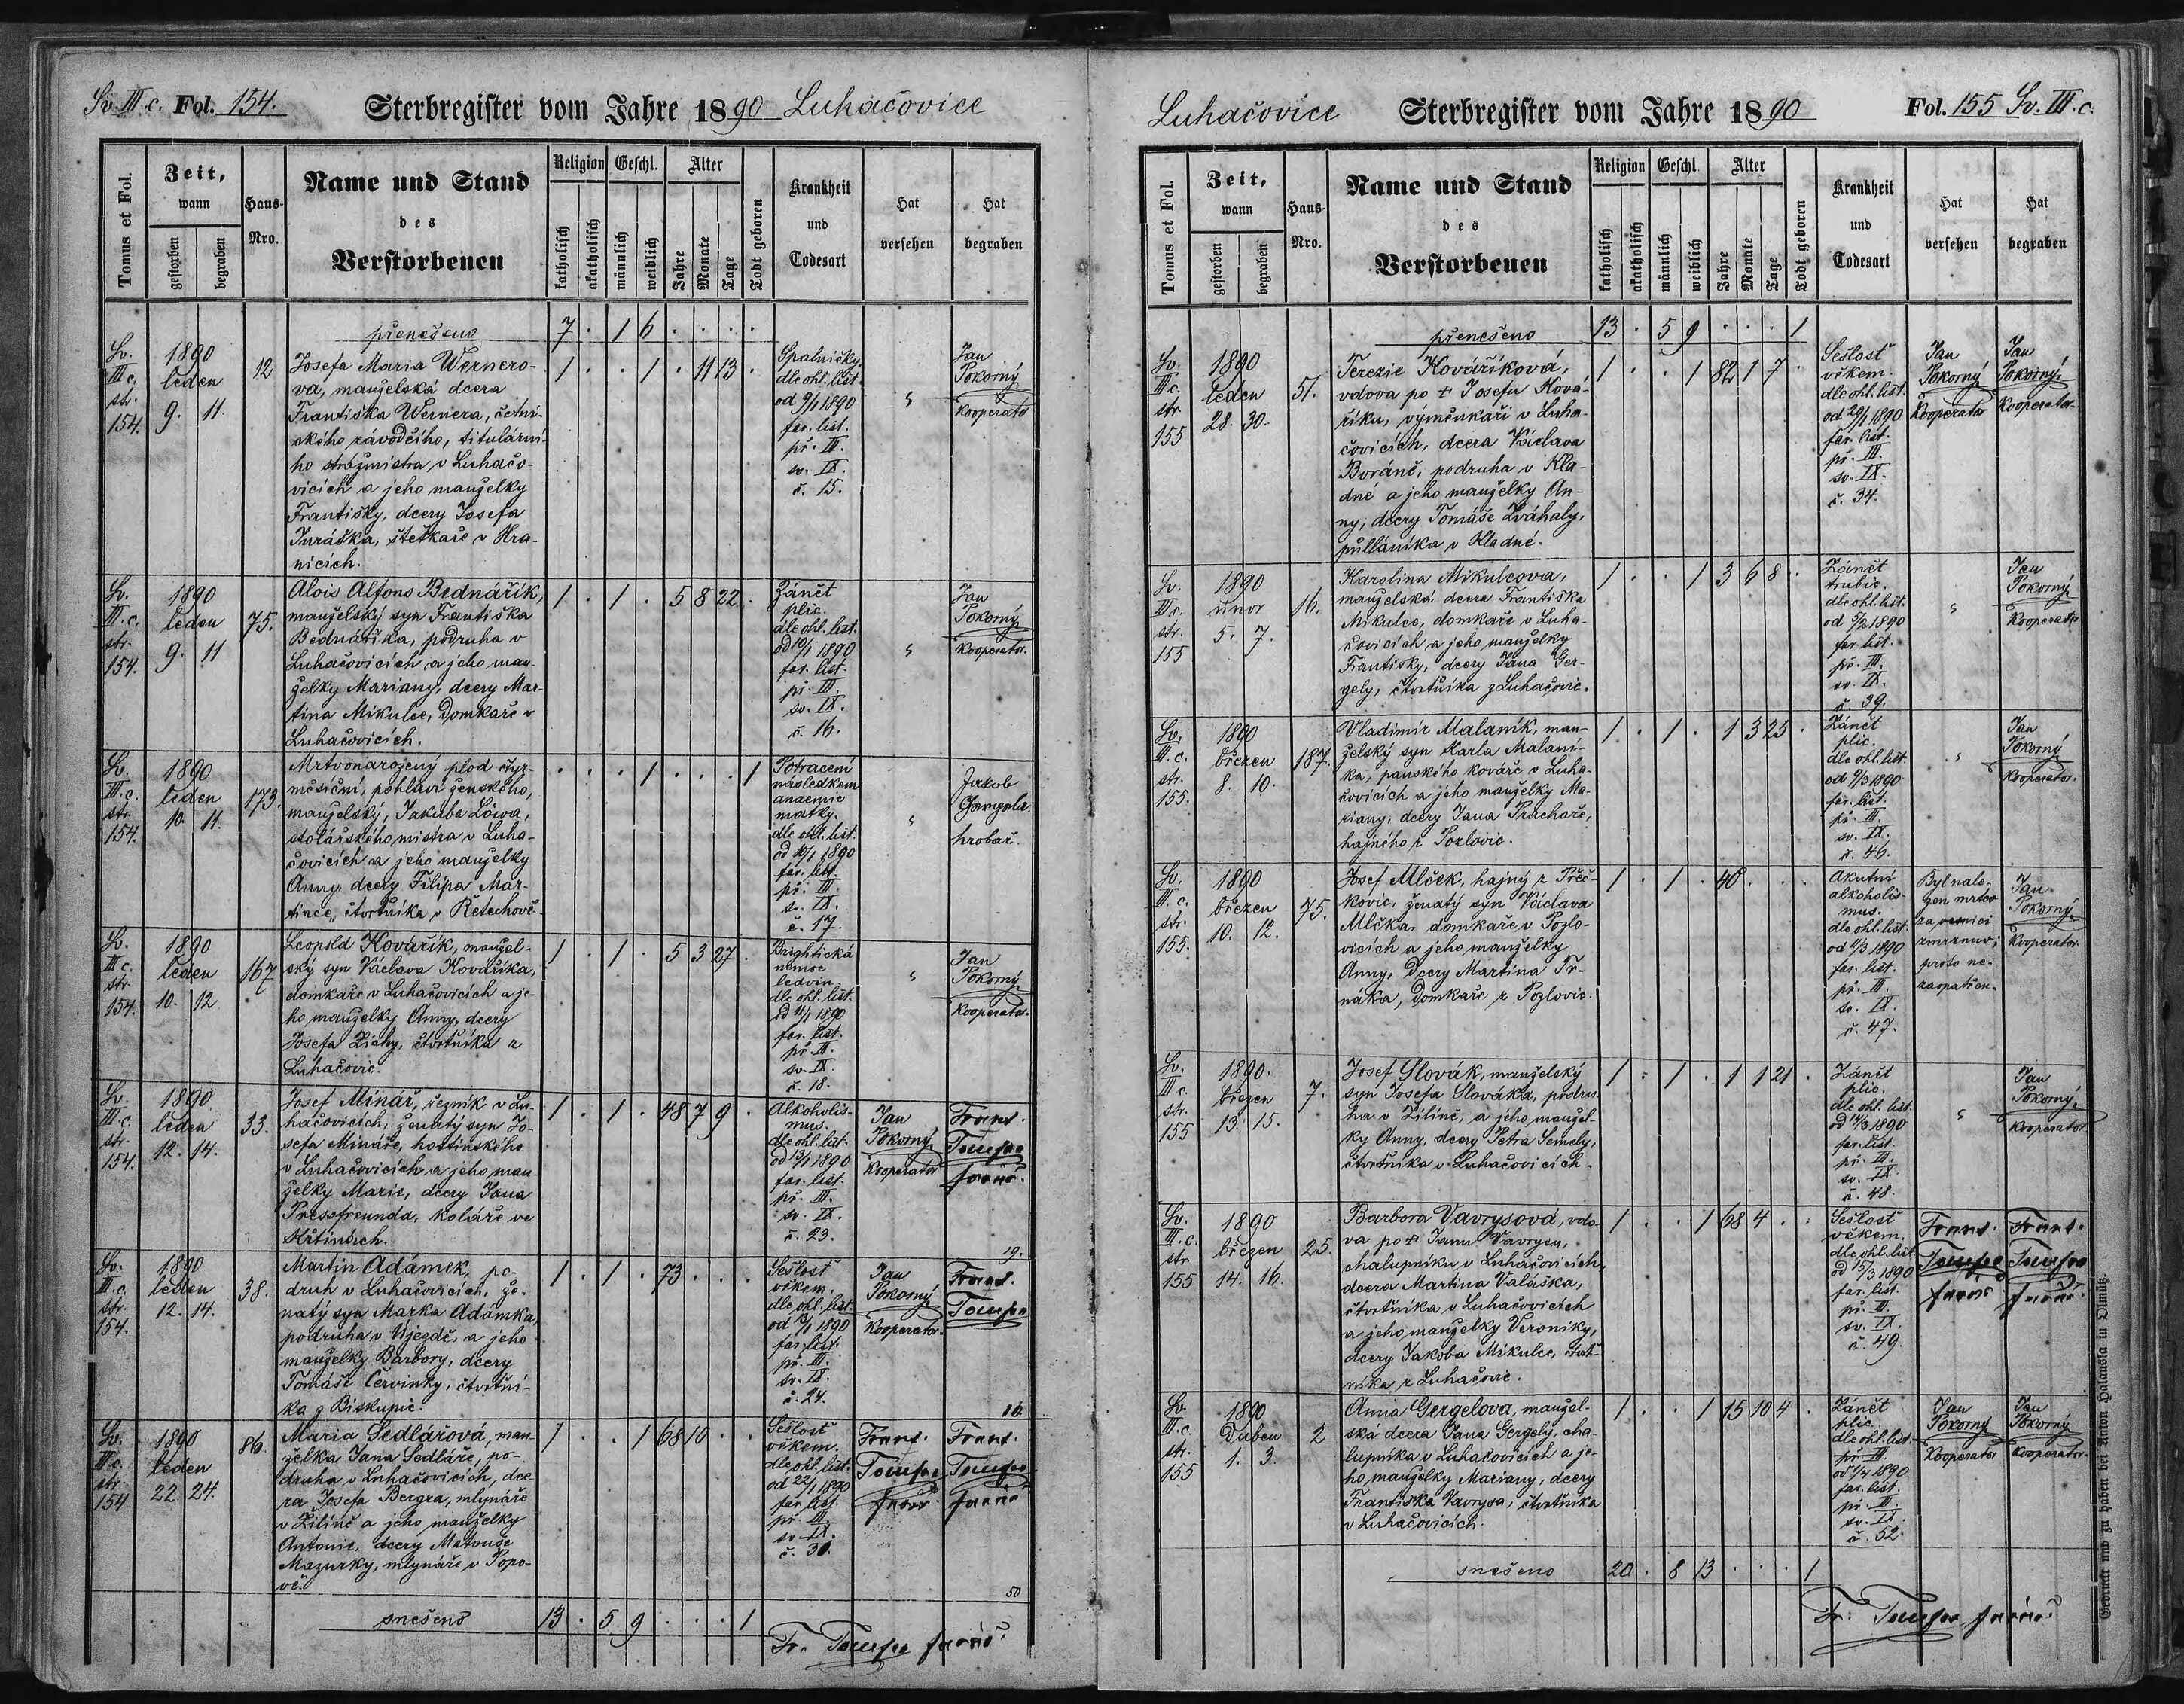 Sv. III. c. Fol. 154. Sterbregister vom Jahre 1890 Luhačovice
Tomus et Fol.
Zeit, wann
gestorben
begraben
Haus-Nro.
Name und Stand
des
Verstorbenen
Religion
katholisch
akatholisch
Geschl.
männlich
weiblich
Alter
Jahre
Monate
Tage
Todt geboren
Krankheit
und
Todesart
Hat
versehen
Hat
begraben
přenešeno 7 . 1 6 . . . .
Sv. III. c. str. 154.
1890
leden
9. 11.
12
Josefa Maria Wernero-
va, manželská dcera
Františka Wernera, četni-
ckého závodčího, titulární-
ho strážmistra v Luhačo-
vicích a jeho manželky
Františky, dcery Josefa
Juráška, štětkaře v Hra-
nicích.
1 . . 1 . 11 13 .
Spalničky
dle ohl. list.
od 9/1 1890
far. list.
př. III.
sv. IX.
č. 15.
Jan
Pokorný
Kooperator
Sv. III. c. str. 154.
1890
leden
9. 11
75.
Alois Alfons Bednářík,
manželský syn Františka
Bednaříka, podruha v
Luhačovicích a jeho man-
želky Mariany, dcery Mar-
tina Mikulce, domkaře v
Luhačovicích.
1 . 1 . 5 8 22 .
Zánět
plic.
dle ohl. list.
od 10/1 1890
far. list.
př. III.
sv. IX.
č. 16.
Jan
Pokorný
Kooperator.
Sv. III. c. str. 154.
1890
leden
10. 11.
173.
Mrtvonarozený plod čtyr-
měsíční, pohlaví ženského,
manželský, Jakuba Löwa,
stolářského mistra v Luha-
čovicích a jeho manželky
Anny, dcery Filipa Mar-
tince, čtvrtníka v Řetechově.
. . . 1 . . . 1
Potracení
následkem
anaemie
matky.
dle ohl. list.
od 10/1 1890
far. list.
př. III.
sv. IX.
č. 17.
Jakob
hrobař.
Sv. III. c. str. 154.
1890
leden
10. 12
167
Leopold Kovářík, manžel-
ský syn Václava Kovaříka,
domkaře v Luhačovicích a je-
ho manželky Anny, dcery
Josefa Zichy, čtvrtníka z
Luhačovic.
1 . 1 . 5 3 27 .
Brightická
nemoc
ledvin.
dle ohl. list.
od 11/1 1890
far. list.
př. III.
sv. IX.
č. 18.
Jan
Pokorný
Kooperator.
Sv. III. c. str. 154.
1890
leden
12. 14.
33.
Josef Minář, řezník v Lu-
hačovicích, ženatý syn Jo-
sefa Mináře, hostinského
v Luhačovicích a jeho man-
želky Marie, dcery Jana
Pressfreunda, koláře ve
Křtinách.
1 . 1 . 48 7 9 .
Alkoholis-
mus.
dle ohl. list.
od 13/1 1890
far. list.
př. III.
sv. IX.
č. 23.
Jan
Pokorný
Kooperator
farář.
19.
Sv. III. c. str. 154.
1890
leden
12. 14.
38.
Martin Adámek, po-
druh v Luhačovicích, že-
natý syn Marka Adámka,
podruha v Újezdě, a jeho
manželky Barbory, dcery
Tomáše Červinky, čtvrtní-
ka z Biskupic.
1 . 1 . 73 . . .
Sešlosť
věkem.
dle ohl. list.
far. list.
př. III.
sv. IX.
č. 24.
Jan
Pokorný
Kooperator.
Sv. III. c. str. 154
1890
leden
22. 24.
86.
Maria Sedlářová, man-
želka Jana Sedláře, po-
druha v Luhačovicích, dce-
ra Josefa Bergra, mlynáře
v Žilíně a jeho manželky
Antonie, dcery Matouše
Mazurky, mlynáře v Popo-
vě.
1 . . 1 68 10 . .
Sešlosť
věkem.
dle ohl. list.
od 22/1 1890
far. list.
př. III.
sv. IX.
č. 30.
farář
farář
50
snešeno 13 . 5 9 . . . 1
farář.
Luhačovice Sterbregister vom Jahre 1890 Fol. 155 Sv. III. c.
Tomus et Fol.
Zeit, wann
gestorben
begraben
Haus-Nro.
Name und Stand
des
Verstorbenen
Religion
katholisch
akatholisch
Geschl
männlich
weiblich
Alter
Jahre
Monate
Tage
Todt geboren
Krankheit
und
Todesart
Hat
versehen
Hat
begraben
přenešeno 13 . 5 9 . . . 1
Sv. III. c. str. 155
1890
leden
28. 30.
51.
Terezie Kováříková,
vdova po + Josefu Ková-
říku, výměnkáři v Luha-
čovicích, dcera Václava
Boráně, podruha v Kla-
dné a jeho manželky An-
ny, dcery Tomáše Zváhaly,
půlláníka v Kladné.
1 . . 1 82 1 7 .
Sešlosť
věkem.
dle ohl. list.
od 29/1 1890
far. list.
př. III.
sv. IX.
č. 34.
Jan
Pokorný
Kooperator
Jan
Pokorný
Kooperator.
Sv. III. c. str. 155
1890
únor
5. 7.
16.
Karolina Mikulcova,
manželská dcera Františka
Mikulce, domkaře v Luha-
čovicích a jeho manželky
Františky, dcery Jana Ger-
gely, čtvrtníka z Luhačovic.
1 . . 1 3 6 8 .
Zánět
trubic.
dle ohl. list.
od 5/2 1890
far. list.
př. III.
sv. IX.
č. 39.
Jan
Pokorný
Kooperator
Sv. III. c. str. 155.
1890
březen
8. 10.
187.
Vladimír Malaník, man-
želský syn Karla Malaní-
ka, panského kováře v Luha-
čovicích a jeho manželky Ma-
riany, dcery Jana Prachaře,
hajného z Pozlovic.
1 . 1 . 1 3 25 .
Zánět
plic.
dle ohl. list.
od 9/3 1890
far. list.
př. III.
sv. IX.
č. 46.
Jan
Pokorný
Kooperator.
Sv. III. c. str. 155.
1890
březen
10. 12.
75.
Josef Mlček, hajný z Přeč-
kovic, ženatý syn Václava
Mlčka, domkaře v Pozlo-
vicích a jeho manželky
Anny, dcery Martina Tr-
náka, domkaře z Pozlovic.
1 . 1 . 40 . . .
Akutní
alkoholis-
mus.
dle ohl. list.
od 11/3 1890
far. list.
př. III.
sv. IX.
č. 47.
Byl nale-
zen mrtev
za vesnicí
zmrznuv;
proto ne-
zaopatřen.
Jan
Pokorný
Kooperator
Sv. III. c. str. 155
1890.
březen
13. 15.
7.
Josef Slovák, manželský
syn Josefa Slováka, podru-
ha v Žilíně, a jeho manžel-
ky Anny, dcery Petra Semely,
čtvrtníka v Luhačovicích.
1 . 1 . 1 1 21 .
Zánět
plic.
dle ohl. list.
od 14/3 1890
far. list.
př. III.
sv. IX.
č. 48.
Jan
Pokorný
Kooperator
Sv. III. c. str. 155
1890
březen
14. 16.
25.
Barbora Vavrysová, vdo-
va po + Janu Vavrysu,
chalupníku v Luhačovicích,
dcera Martina Valáška,
čtvrtníka v Luhačovicích
a jeho manželky Veroniky,
dcery Jakoba Mikulce, čtvrt-
níka z Luhačovic.
1 . . 1 68 4 . .
Sešlosť
věkem.
dle ohl. list.
od 15/3 1890
far. list.
př. III.
sv. IX.
č. 49.
farář
farář.
Sv. III. c. str. 155
1890
Duben
1. 3.
2
Anna Gergelova, manžel-
ská dcera Jana Gergely, cha-
lupníka v Luhačovicích a je-
ho manželky Mariany, dcery
Františka Vavrysa, čtvrtníka
v Luhačovicích.
1 . . 1 15 10 4 .
Zánět
plic.
dle ohl. list.
př. III.
od 1/4 1890
far. list.
př. III.
sv. IX.
č. 52.
Jan
Pokorný
Kooperator
Jan
Pokorný
Kooperator.
snešeno 20 . 8 13 . . . 1
farář.
Gedruckt und zu haben bei Anton Halauska in Olmütz.